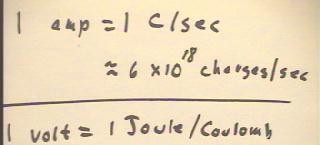 1 amp = 1 C/sec
≈ 6 x10^18 charges/sec
1 volt = 1 Joule/Coulomb